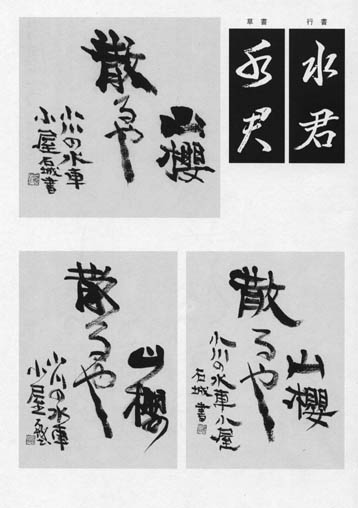 行書
水君
草書
水君
山櫻
散るや
小川の水車
小屋 石城書
山櫻
散るや
小川の水車小屋
石城書
山櫻
散るや
小川の水車
小屋